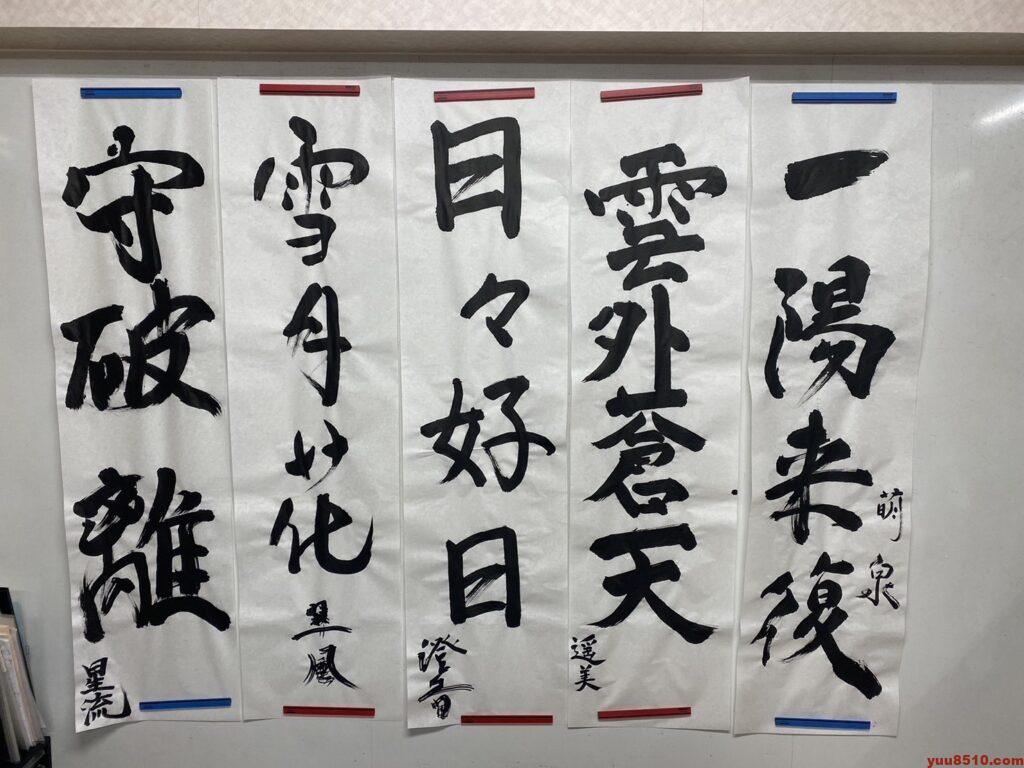 一陽来復
萌泉
雲外蒼天
遥美
日々好日
雪月花
守破離
星流
yuu8510.com